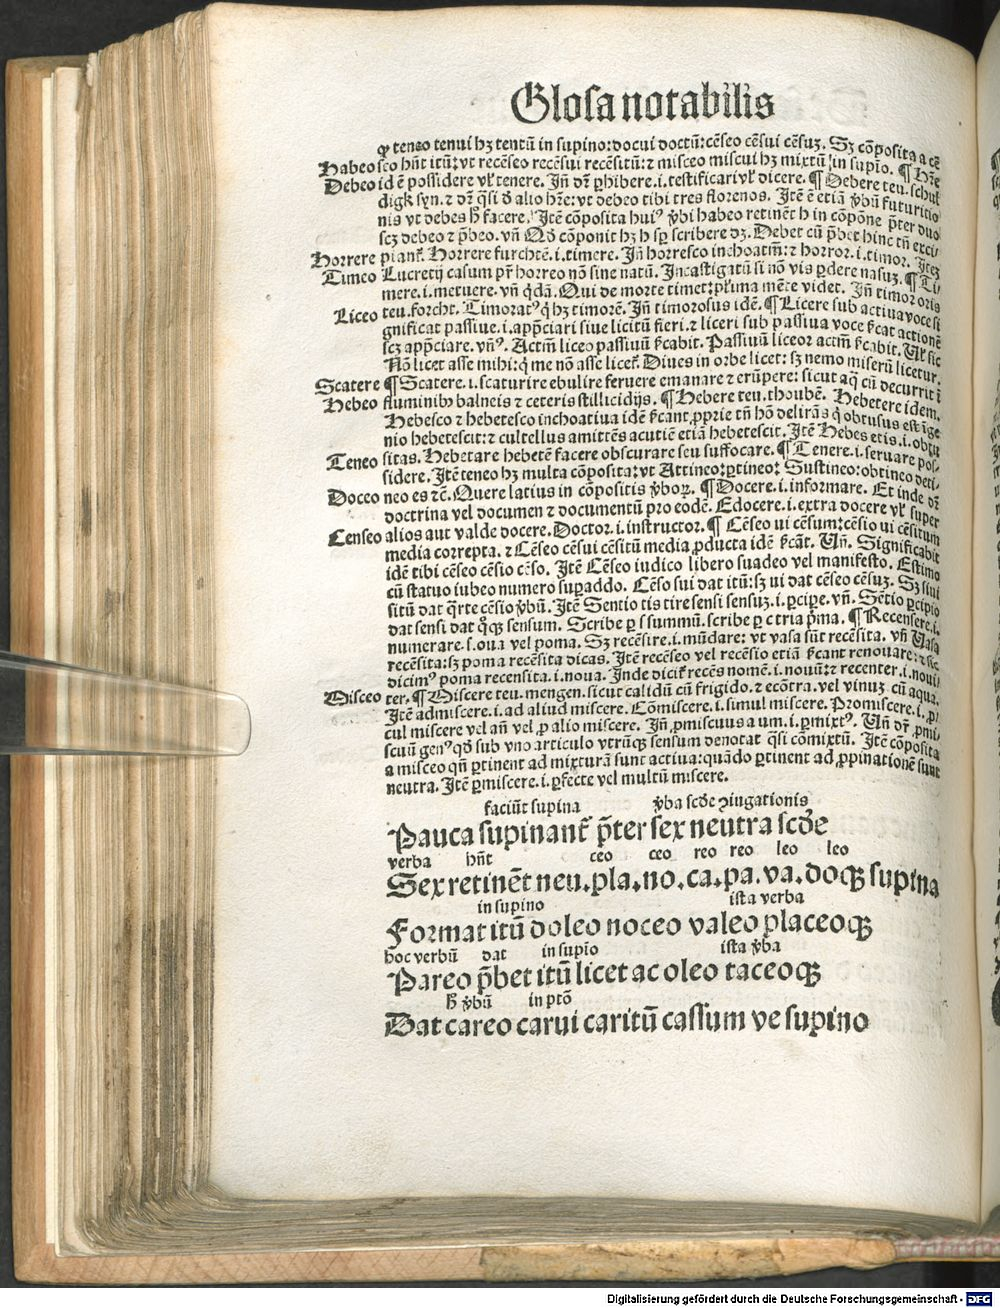 Glosa notabilis
ꝙ teneo tenui hꝫ tentū in supino: docui doctū: cēseo cēsui cēsuꝫ. Sꝫ cōposita a cē
Habeo sco hn̄t itū: vt recēseo recēsui recēsitū: ⁊ misceo miscui hꝫ mixtū in supīo. ¶ Hr̄e
Debeo id ē possidere vĺ tenere. Jn̄ dr̄ ꝑhibere .i. testificari vĺ dicere. ¶ Debere teu. schul
digk syn. ⁊ dr̄ q̄si ď alio hr̄e: vt debeo tibi tres florenos. Jtē ē etiā v̄bū futuritio
nis vt debes h̄ facere. Jtē cōposita huiꝰ v̄bi habeo retinēt h in cōpōne p̄ter duo
scꝫ debeo ⁊ p̄beo. vn̄ Qď cōponit hꝫ h sꝑ scribere dꝫ. Debet cū p̄bet hinc tn̄ exci
Horrere piant́. Horrere furchtē .i. timere. Jn̄ horresco inchoatm̄: ⁊ horror .i. timor. Jteꝫ
Timeo Lucretij casum pr̄ horreo nō sine natū. Jncastigatū si nō vis ꝑdere nasuꝫ. ¶ Ti
mere .i. metuere. vn̄ q̄dā. Qui de morte timet: pĺima mēte videt. Jn̄ timor oris
Liceo teu. forcht. Timoratꝰ q̇ hꝫ timorē. Jn̄ timorosus idē. ¶ Licere sub actiua voce si
gnificat passiue .i. app̄ciari siue licitū fieri. ⁊ liceri sub passiua voce śc̄at actionē
scꝫ app̄ciare. vn̄ꝰ. Actm̄ liceo passiuū śc̄abit. Passiuū liceor actm̄ śc̄abit. Vĺ sic
Nō licet asse mihi: q̇ me nō asse licet́. Diues in orbe licet: sꝫ nemo miserū licetur.
Scatere ¶ Scatere .i. scaturire ebulire feruere emanare ⁊ erūpere: sicut aq̄ cū decurrit ī
Hebeo fluminibꝰ balneis ⁊ ceteris stillicidijs. ¶ Hebere teu. thoubē. Hebetere idem.
Hebesco ⁊ hebetesco inchoatiua idē śc̄ant, ꝓprie tn̄ hō delirās q̇ obtusus est īge
nio hebetescit: ⁊ cultellus amittēs acutiē etiā hebetescit. Jtē Hebes etis .i. obtu
Teneo sitas. Hebetare hebetē facere obscurare seu suffocare. ¶ Tenere .i. seruare pos
sidere. Jtē teneo hꝫ multa cōposita: vt Attineo: ꝑtineo: Sustineo: obtineo deti
Doceo neo es rē. Quere latius in cōpositis v̄boꝝ. ¶ Docere .i. informare. Et inde dr̄
doctrina vel documen ⁊ documentū pro eodē. Edocere .i. extra docere vĺ super
Censeo alios aut valde docere. Doctor .i. instructor. ¶ Cēseo ui cēsum: cēsio ui cēsitum
media correpta. ⁊ Cēseo cēsui cēsitū media ꝓducta idē śc̄āt. Vn̄. Significabit
idē tibi cēseo cēsio cēso. Jtē Cēseo iudico libero suadeo vel manifesto. Estimo
cū statuo iubeo numero suꝑaddo. Cēso sui dat itū: sꝫ ui dat cēseo cēsuꝫ. Sꝫ siui
sitū dat q̄rte cēsio v̄bū. Jtē Sentio tis tire sensi sensuꝫ .i. ꝑciꝑe. vn̄. Sētio ꝑcipio
dat sensi dat q̇ꝙ sensum. Scribe ꝑ s summū. scribe ꝑ c tria p̄ma. ¶ Recensere .i.
numerare. s. oua vel poma. Sꝫ recēsire .i. mūdare: vt vasa sūt recēsita. vn̄ Vasa
recēsita: sꝫ poma recēsita dicas. Jtē recēseo vel recēsio etiā śc̄ant renouare: ⁊ sic
dicimꝰ poma recensita .i. noua. Jnde dicit́ recēs nomē .i. nouū: ⁊ recenter .i. noui
Misceo ter. ¶ Miscere teu. mengen. sicut calidū cū frigido. ⁊ ecōtra. vel vinuꝫ cū aqua.
Jtē admiscere .i. ad aliud miscere. Cōmiscere .i. simul miscere. Promiscere .i. ꝓ
cul miscere vel an̄ vel ꝓ alio miscere. Jn̄ ꝓmiscuus a um .i. ꝑmixtꝰ. Vn̄ dr̄ ꝓmi
scuū genꝰ qď sub vno articulo vtrūꝙ sensum denotat q̄si cōmixtū. Jtē cōposita
a misceo qn̄ ꝑtinent ad mixturā sunt actiua: quādo ꝑtinent ad ꝓpinationē sunt
neutra. Jtē ꝑmiscere .i. ꝑfecte vel multū miscere.
faciūt supina v̄ba scďe ꝯiugationis
Pauca supinant́ p̄ter sex neutra scďe
verba hn̄t ceo ceo reo reo leo leo
Sex retinēt neu. pla. no. ca. pa. va. doꝙ supina
in supino ista verba
Format itū doleo noceo valeo placeoꝙ
hoc verbū dat in supīo ista v̄ba
Pareo p̄bet itū licet ac oleo taceoꝙ
h̄ v̄bū in ptō
Dat careo carui caritū cassum ve supino
Digitalisierung gefördert durch die Deutsche Forschungsgemeinschaft - DFG